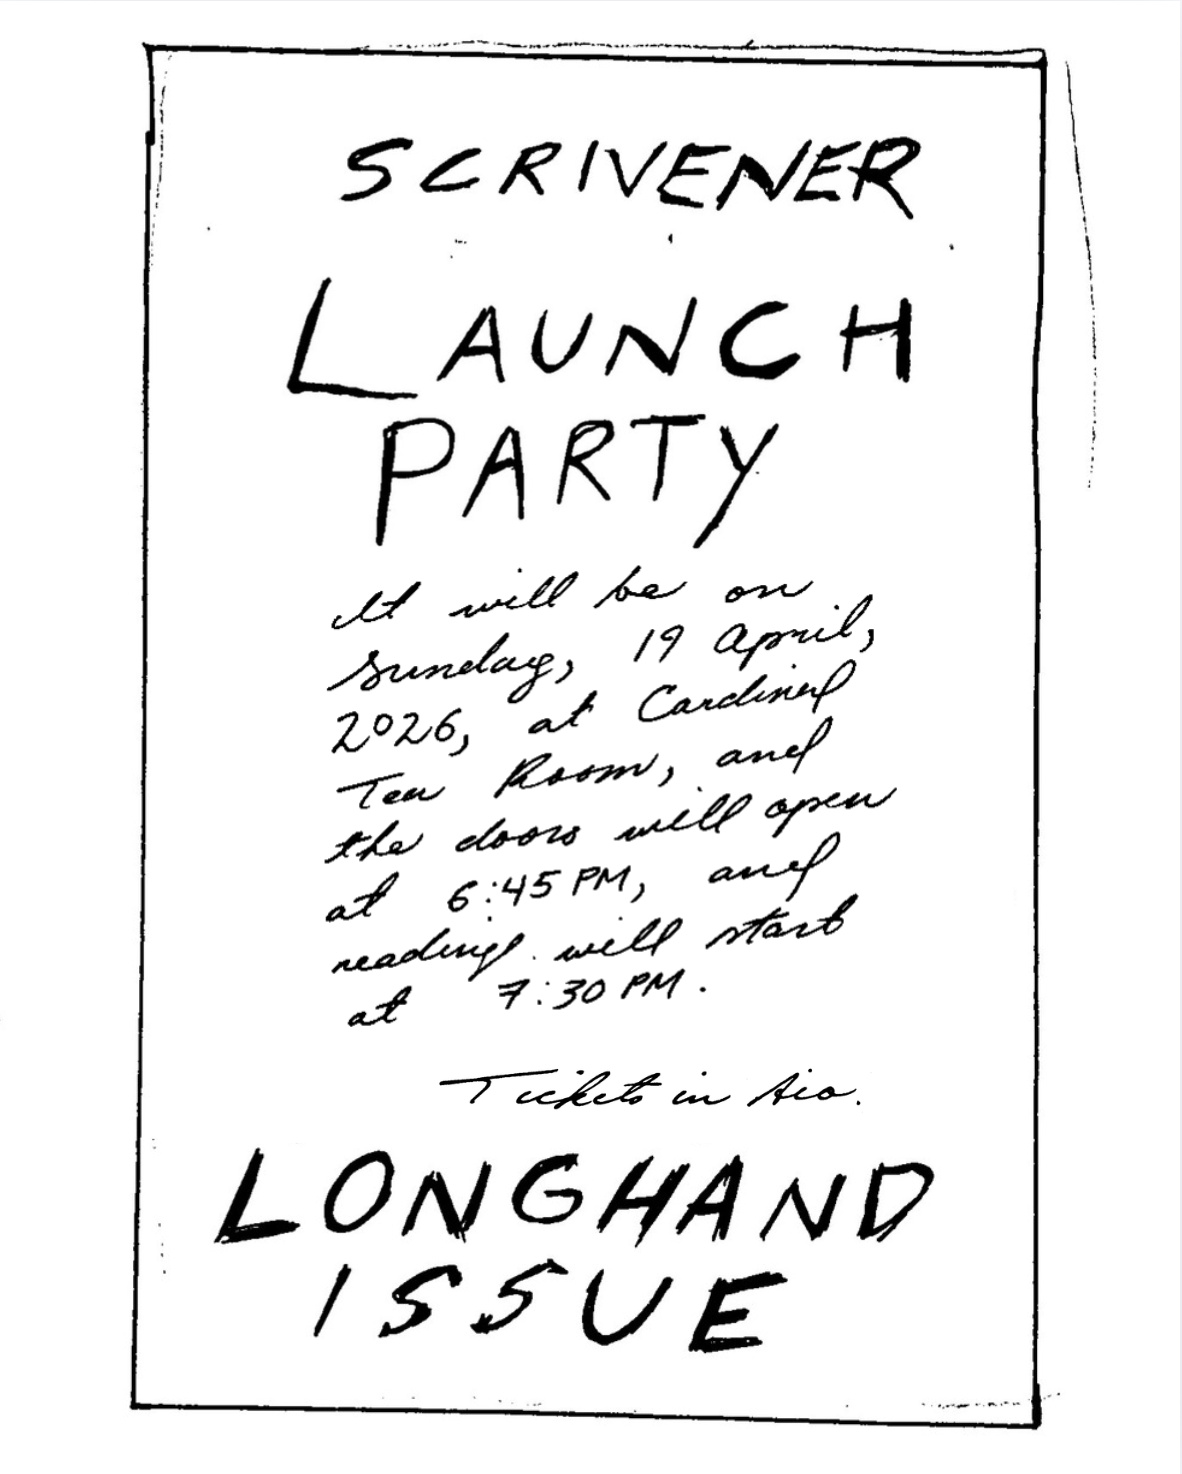 SCRIVENER
LAUNCH
PARTY
It will be on
Sunday, 19 April,
2026, at Cardinal
Tea Room, and
the doors will open
at 6:45 PM, and
readings will start
at 7:30 PM.
Tickets in bio.
LONGHAND
ISSUE